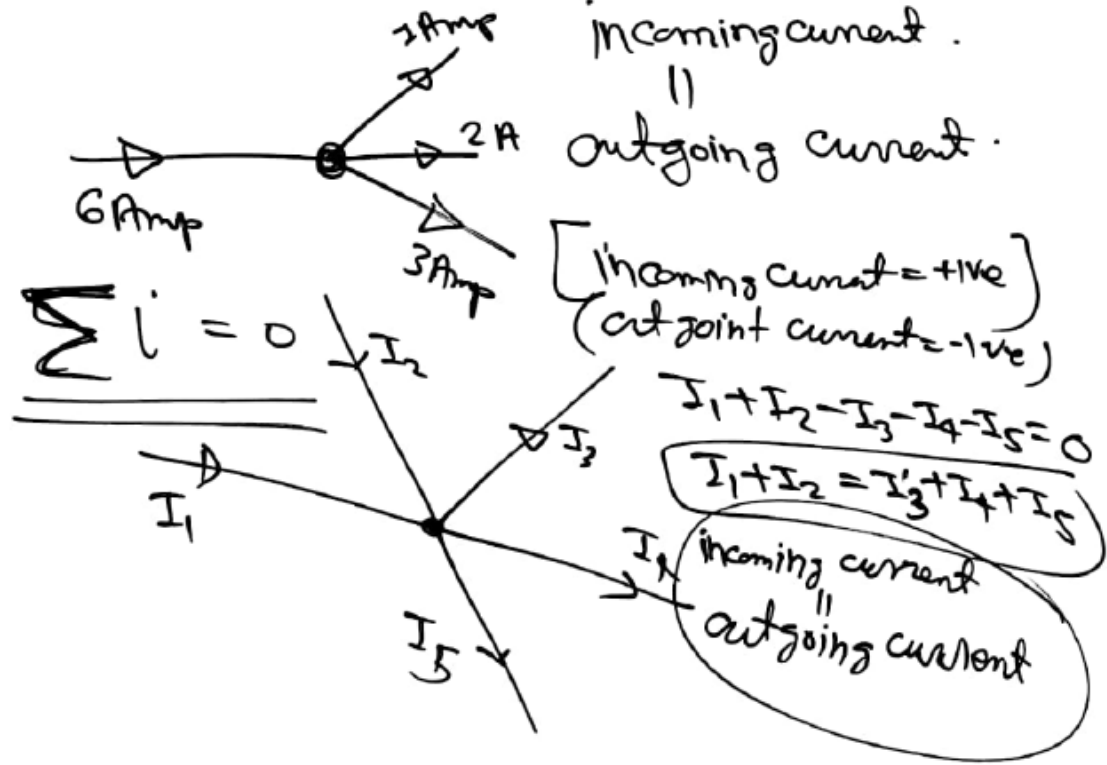 1Amp
incoming current.
||
2A
outgoing current.
6Amp
3Amp
[incoming current = +ive]
(outgoint current = -ive)
∑ i = 0
I2
I1+I2-I3-I4-I5=0
I3
I1+I2 = I3+I4+I5
I1
I4
incoming current
||
outgoing current
I5